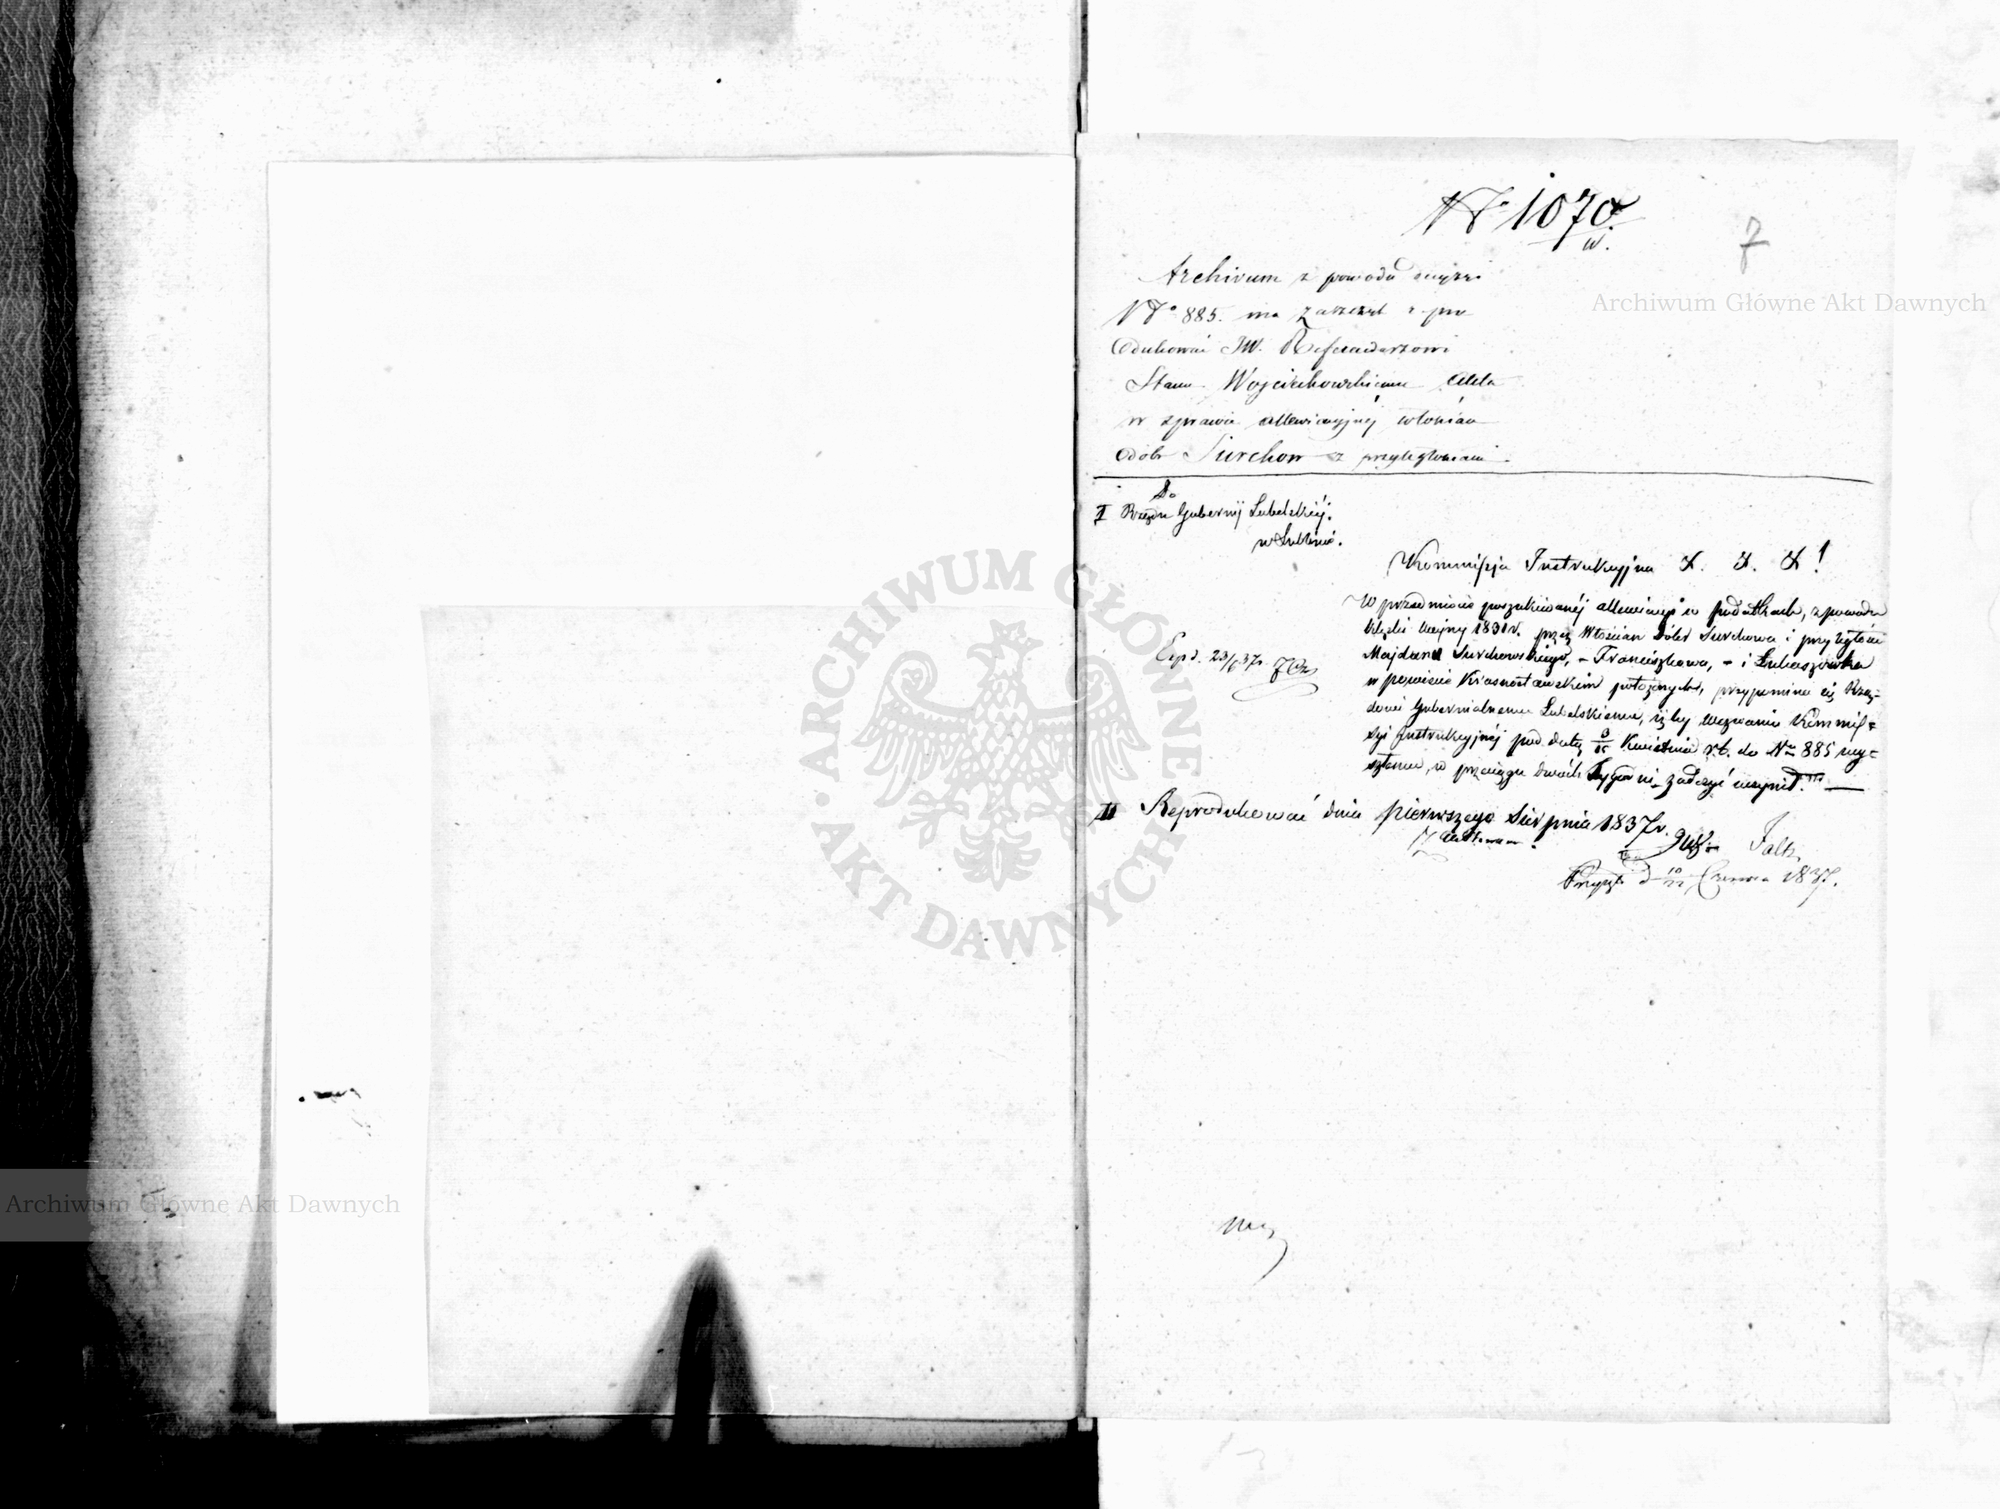 No 1070.
w.
7
Archivum z powodu
No 885. ma zaszczyt repro
dukować JW. Referendarzowi
Stanu Wojciechowskiemu Akta
w sprawie allewiacyjnéj włościan
dóbr Surchow z przyległościami
Do
I Rządu Gubernij Lubelskiéj.
w Lublinie.
Kommissja Instrukcyjna
W przedmiocie poszukiwanéj allewiacyi w podatkach, z powodu
klęski wojny 1831 r. przez Włościan Dóbr Surchowa i przyległości
Majdanu Surchowskiego, - Franciszkowa, - i Łukaszówka
w powiecie Krasnostawskim położonych, przypomina się Rzą-
dowi Gubernialnemu Lubelskiemu, iżby wezwaniu Kommis-
syi Instrukcyjnéj pod datą 3/15 Kwietnia r. b. do No 885 wy-
słanemu, w przeciągu dwóch Tygodni, zadosyć uczynił.
Exp d. 23/6 37 r.
II Reprodukować dnia pierwszego Sierpnia 1837 r.
Faltz
d 10/22 Czerwca 1837.
Archiwum Główne Akt Dawnych
ARCHIWUM GŁÓWNE AKT DAWNYCH
Archiwum Główne Akt Dawnych